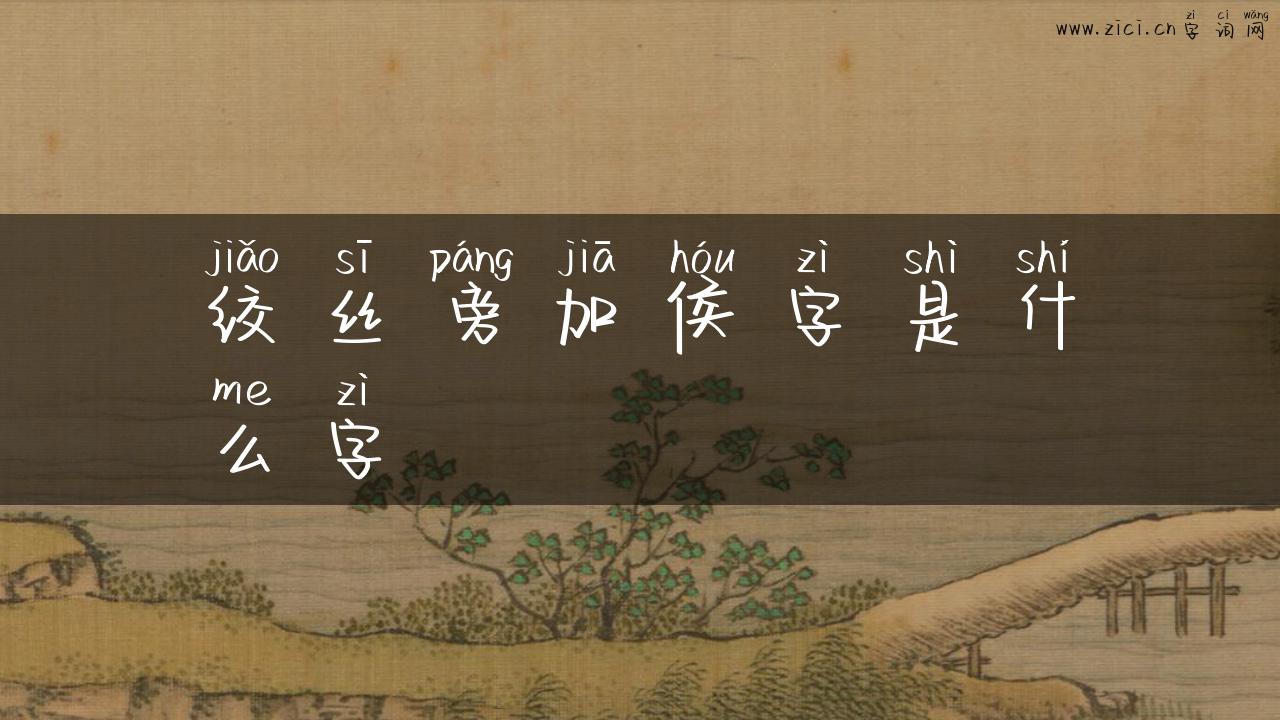 zì cí wǎng
www.zici.cn 字 词 网
jiǎo sī páng jiā hóu zì shì shí
绞 丝 旁 加 侯 字 是 什
me zì
么 字